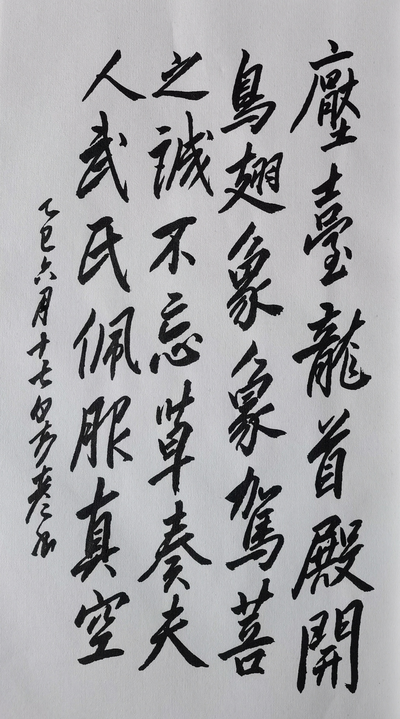 壓臺龍首殿開
鳥翅象象駕菩
之誠不忘草奏夫
人武氏佩服真空
乙巳六月十七日